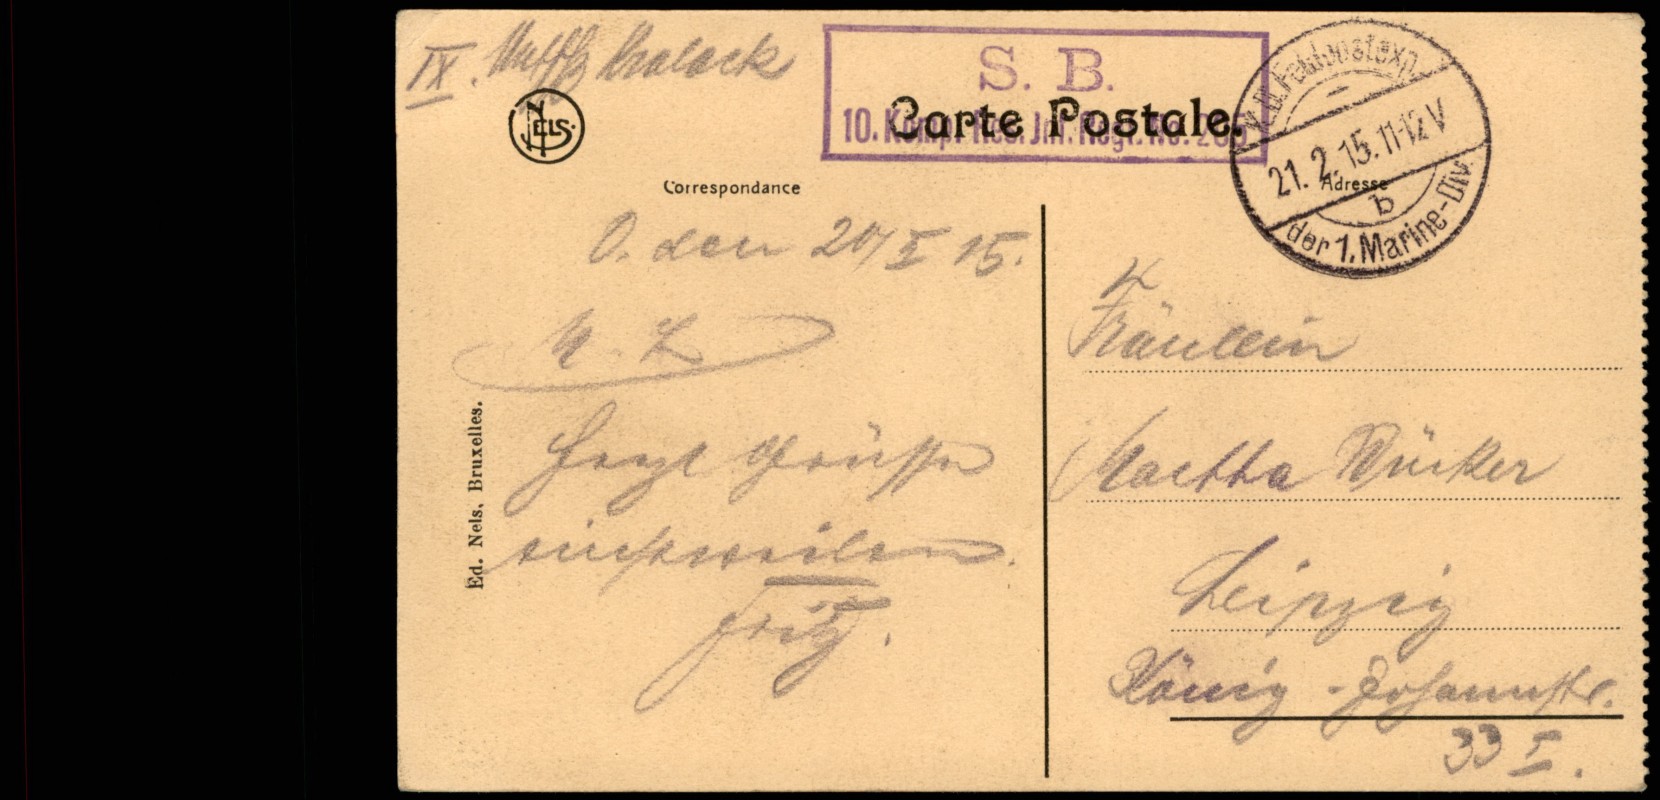 IX.
S. B.
10. Komp. Res. Jnf. Regt. No.
Carte Postale.
NELS.
K.D. Feldpostexp.
21. 2. 15. 11-12 V
b
der 1. Marine-Div.
Correspondance
Adresse
O. den 20/II 15.
M. L.
Herzl Grüsse
einstweilen.
Fritz.
Fräulein
Martha
Leipzig
König-Johannstr.
33 I.
Ed. Nels, Bruxelles.